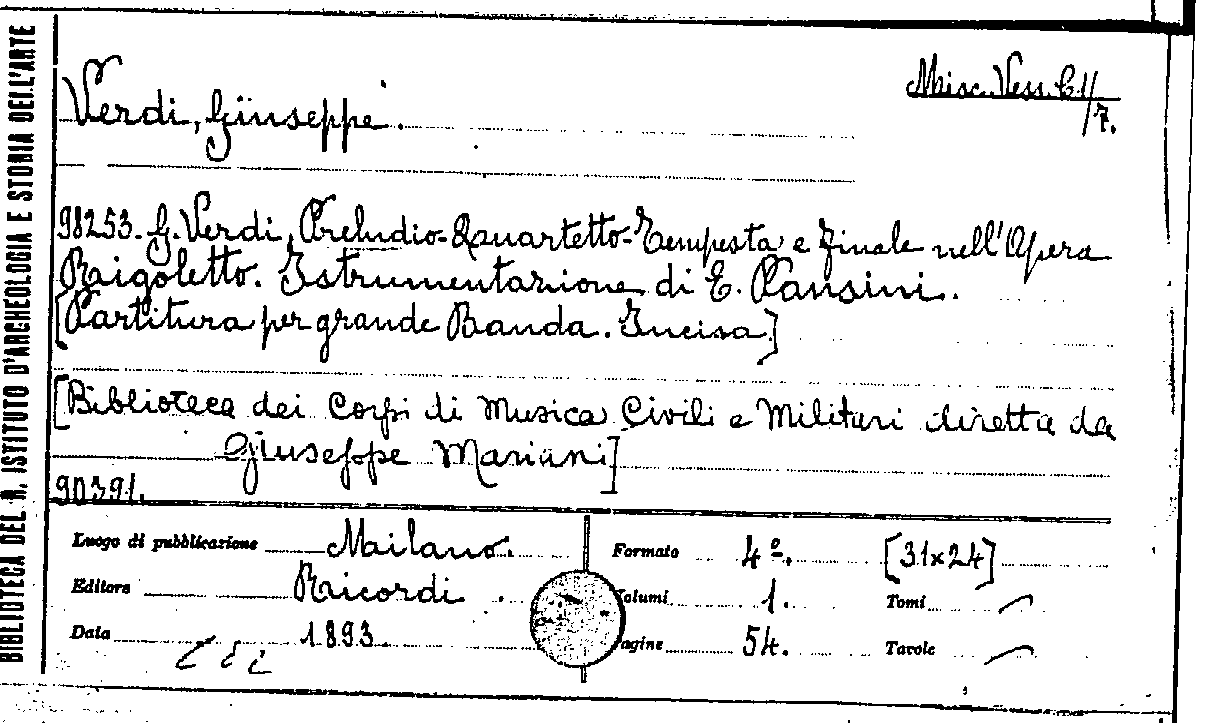 BIBLIOTECA DEL R. ISTITUTO D'ARCHEOLOGIA E STORIA DELL'ARTE
Misc. Vess. C1/7.
Verdi, Giuseppe.
98253. G. Verdi, Preludio-Quartetto-Tempesta e Finale nell'Opera
Rigoletto. Istrumentazione di E. Pansini.
[Partitura per grande Banda. Incisa]
[Biblioteca dei Corpi di Musica Civili e Militari diretta da
Giuseppe Mariani]
90391.
Luogo di pubblicazione Milano. Formato 4º. [31x24]
Editore Ricordi Volumi 1. Tomi
Data 1893 Pagine 54. Tavole